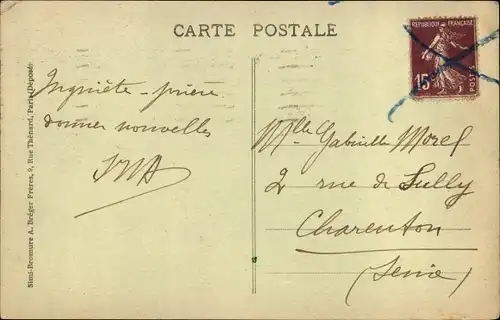 CARTE POSTALE
REPUBLIQUE FRANÇAISE
15c
POSTES
Inquiète - prière
donner nouvelles
Mlle Gabrielle Morel
2 rue de Sully
Charenton
(Seine)
Simi-Bromure A. Bréger Frères, 9, Rue Thénard, Paris (Déposé)